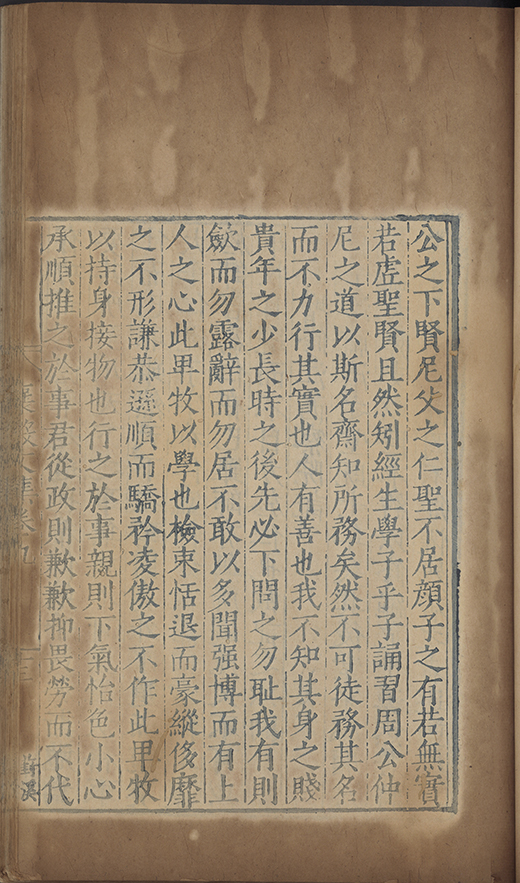 公之下賢尼父之仁聖不居顔子之有若無實
若虛聖賢且然矧經生學子乎子誦習周公仲
尼之道以斯名齋知所務矣然不可徒務其名
而不力行其實也人有善也我不知其身之賤
貴年之少長時之後先必下問之勿耻我有則
歛而勿露辭而勿居不敢以多聞强博而有上
人之心此卑牧以學也檢束恬退而豪縱侈靡
之不形謙恭遜順而驕矜凌傲之不作此卑牧
以持身接物也行之於事親則下氣怡色小心
承順推之於事君從政則歉歉抑畏勞而不代